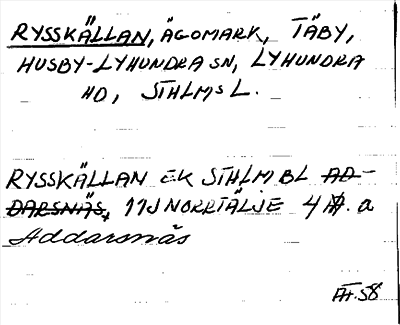 RYSSKÄLLAN, ÄGOMARK, TÄBY,
HUSBY-LYHUNDRA SN, LYHUNDRA
HD, STHLMS L.
RYSSKÄLLAN EK STHLM BL AD-
DARSNÄS, 11J NORRTÄLJE 4 . a
Addarsnäs
.58